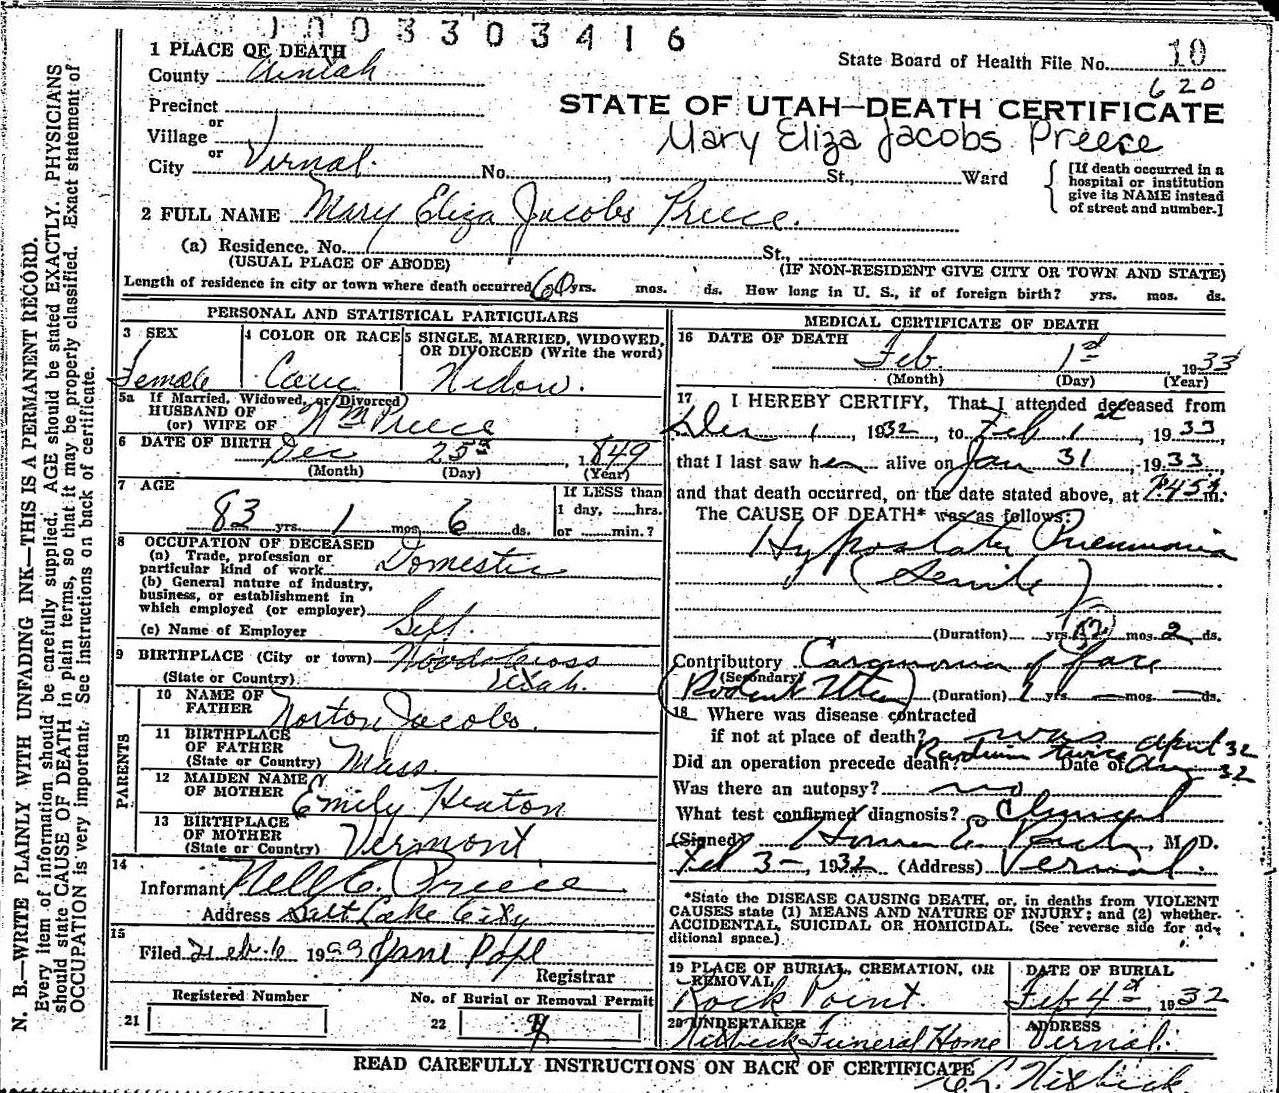 1003303416
1 PLACE OF DEATH
State Board of Health File No. 10
County Uintah
620
Precinct
STATE OF UTAH—DEATH CERTIFICATE
or
Village
Mary Eliza Jacobs Preece
or
City Vernal. No. , St., Ward
[If death occurred in a
hospital or institution
give its NAME instead
of street and number.]
2 FULL NAME Mary Eliza Jacobs Preece.
(a) Residence. No. St.,
(USUAL PLACE OF ABODE) (IF NON-RESIDENT GIVE CITY OR TOWN AND STATE)
Length of residence in city or town where death occurred 60 yrs. mos. ds. How long in U. S., if of foreign birth? yrs. mos. ds.
PERSONAL AND STATISTICAL PARTICULARS
3 SEX 4 COLOR OR RACE 5 SINGLE, MARRIED, WIDOWED,
OR DIVORCED (Write the word)
Female Cauc Widow.
5a If Married, Widowed, or Divorced
HUSBAND OF
(or) WIFE OF Wm Preece
6 DATE OF BIRTH Dec 25th, 1849
(Month) (Day) (Year)
7 AGE
If LESS than
1 day, hrs.
or min.?
83 yrs. 1 mos. 6 ds.
8 OCCUPATION OF DECEASED
(a) Trade, profession or
particular kind of work Domestic
(b) General nature of industry,
business, or establishment in
which employed (or employer)
Self.
(c) Name of Employer
9 BIRTHPLACE (City or town) Woods Cross
(State or Country) Utah.
PARENTS
10 NAME OF
FATHER Norton Jacobs.
11 BIRTHPLACE
OF FATHER
(State or Country) Mass.
12 MAIDEN NAME
OF MOTHER Emily Heaton
13 BIRTHPLACE
OF MOTHER
(State or Country) Vermont
14
Informant Nell C. Preece
Address Salt Lake City
15
Filed Feb 6 1933 Jane Pope
Registrar
Registered Number No. of Burial or Removal Permit
21 22
MEDICAL CERTIFICATE OF DEATH
16 DATE OF DEATH
Feb. 1st 1933
(Month) (Day) (Year)
17 I HEREBY CERTIFY, That I attended deceased from
Dec 1, 1932, to Feb 1st, 1933,
that I last saw her alive on Jan 31, 1933,
and that death occurred, on the date stated above, at 7:45 m.
The CAUSE OF DEATH* was as follows:
Hypostatic Pneumonia
(Senile)
(Duration) yrs. mos. 2 ds.
Contributory Carcinoma of face
(Secondary)
(Rodent Ulcer) (Duration) 1 yrs. — mos. — ds.
18 Where was disease contracted
if not at place of death?
Did an operation precede death? Radium twice Date of April 32
Aug 32
Was there an autopsy? no
What test confirmed diagnosis? Clinical
(Signed) Homer E. Rich, M. D.
Feb 3—, 1932 (Address) Vernal.
*State the DISEASE CAUSING DEATH, or, in deaths from VIOLENT
CAUSES state (1) MEANS AND NATURE OF INJURY; and (2) whether
ACCIDENTAL, SUICIDAL OR HOMICIDAL. (See reverse side for ad-
ditional space.)
19 PLACE OF BURIAL, CREMATION, OR
REMOVAL
DATE OF BURIAL
Rock Point. Feb 4th 1932
20 UNDERTAKER ADDRESS
Funeral Home Vernal.
READ CAREFULLY INSTRUCTIONS ON BACK OF CERTIFICATE
N. B.—WRITE PLAINLY WITH UNFADING INK—THIS IS A PERMANENT RECORD.
Every item of information should be carefully supplied. AGE should be stated EXACTLY. PHYSICIANS
should state CAUSE OF DEATH in plain terms, so that it may be properly classified. Exact statement of
OCCUPATION is very important. See instructions on back of certificate.